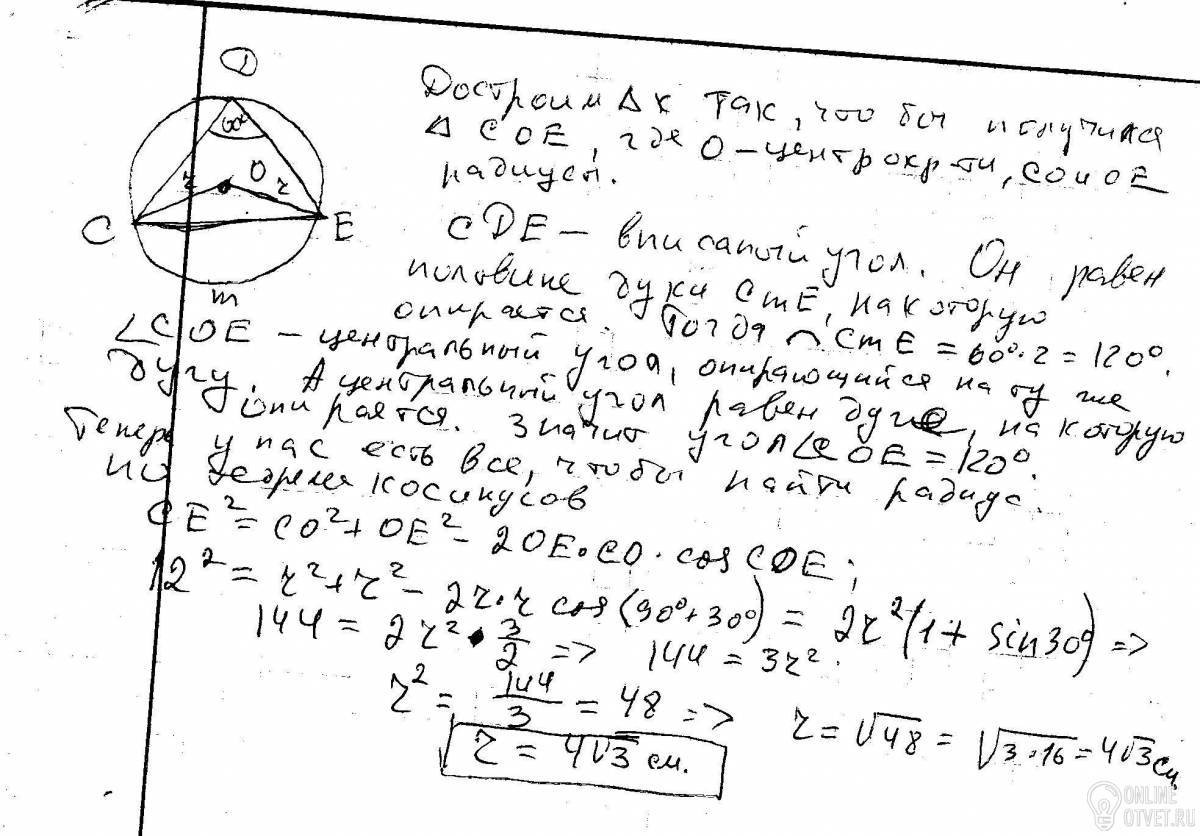 D
60°
r
O
r
C
E
m
Достроим Δ к так, что бы получился
Δ COE, где O – центр окр-ти, CO и OE
радиусы.
CDE – вписаный угол. Он равен
половине дуки CmE, на которую
опирается. Тогда ◠ CmE = 60°·2 = 120°.
∠COE – центральный угол, опирающийся на ту же
дугу. А центральный угол равен дуге, на которую
опирается. Значит угол ∠COE = 120°.
Теперь у нас есть все, чтобы найти радиус.
по теореме косинусов
CE² = CO² + OE² – 2OE·CO·cos COE;
12² = r² + r² – 2r·r cos(90°+30°) = 2r²(1 + sin 30°) =>
144 = 2r² · 3/2 => 144 = 3r².
r² = 144/3 = 48 => r = √48 = √3·16 = 4√3 см
r = 4√3 см.
ONLINE
OTVET.RU